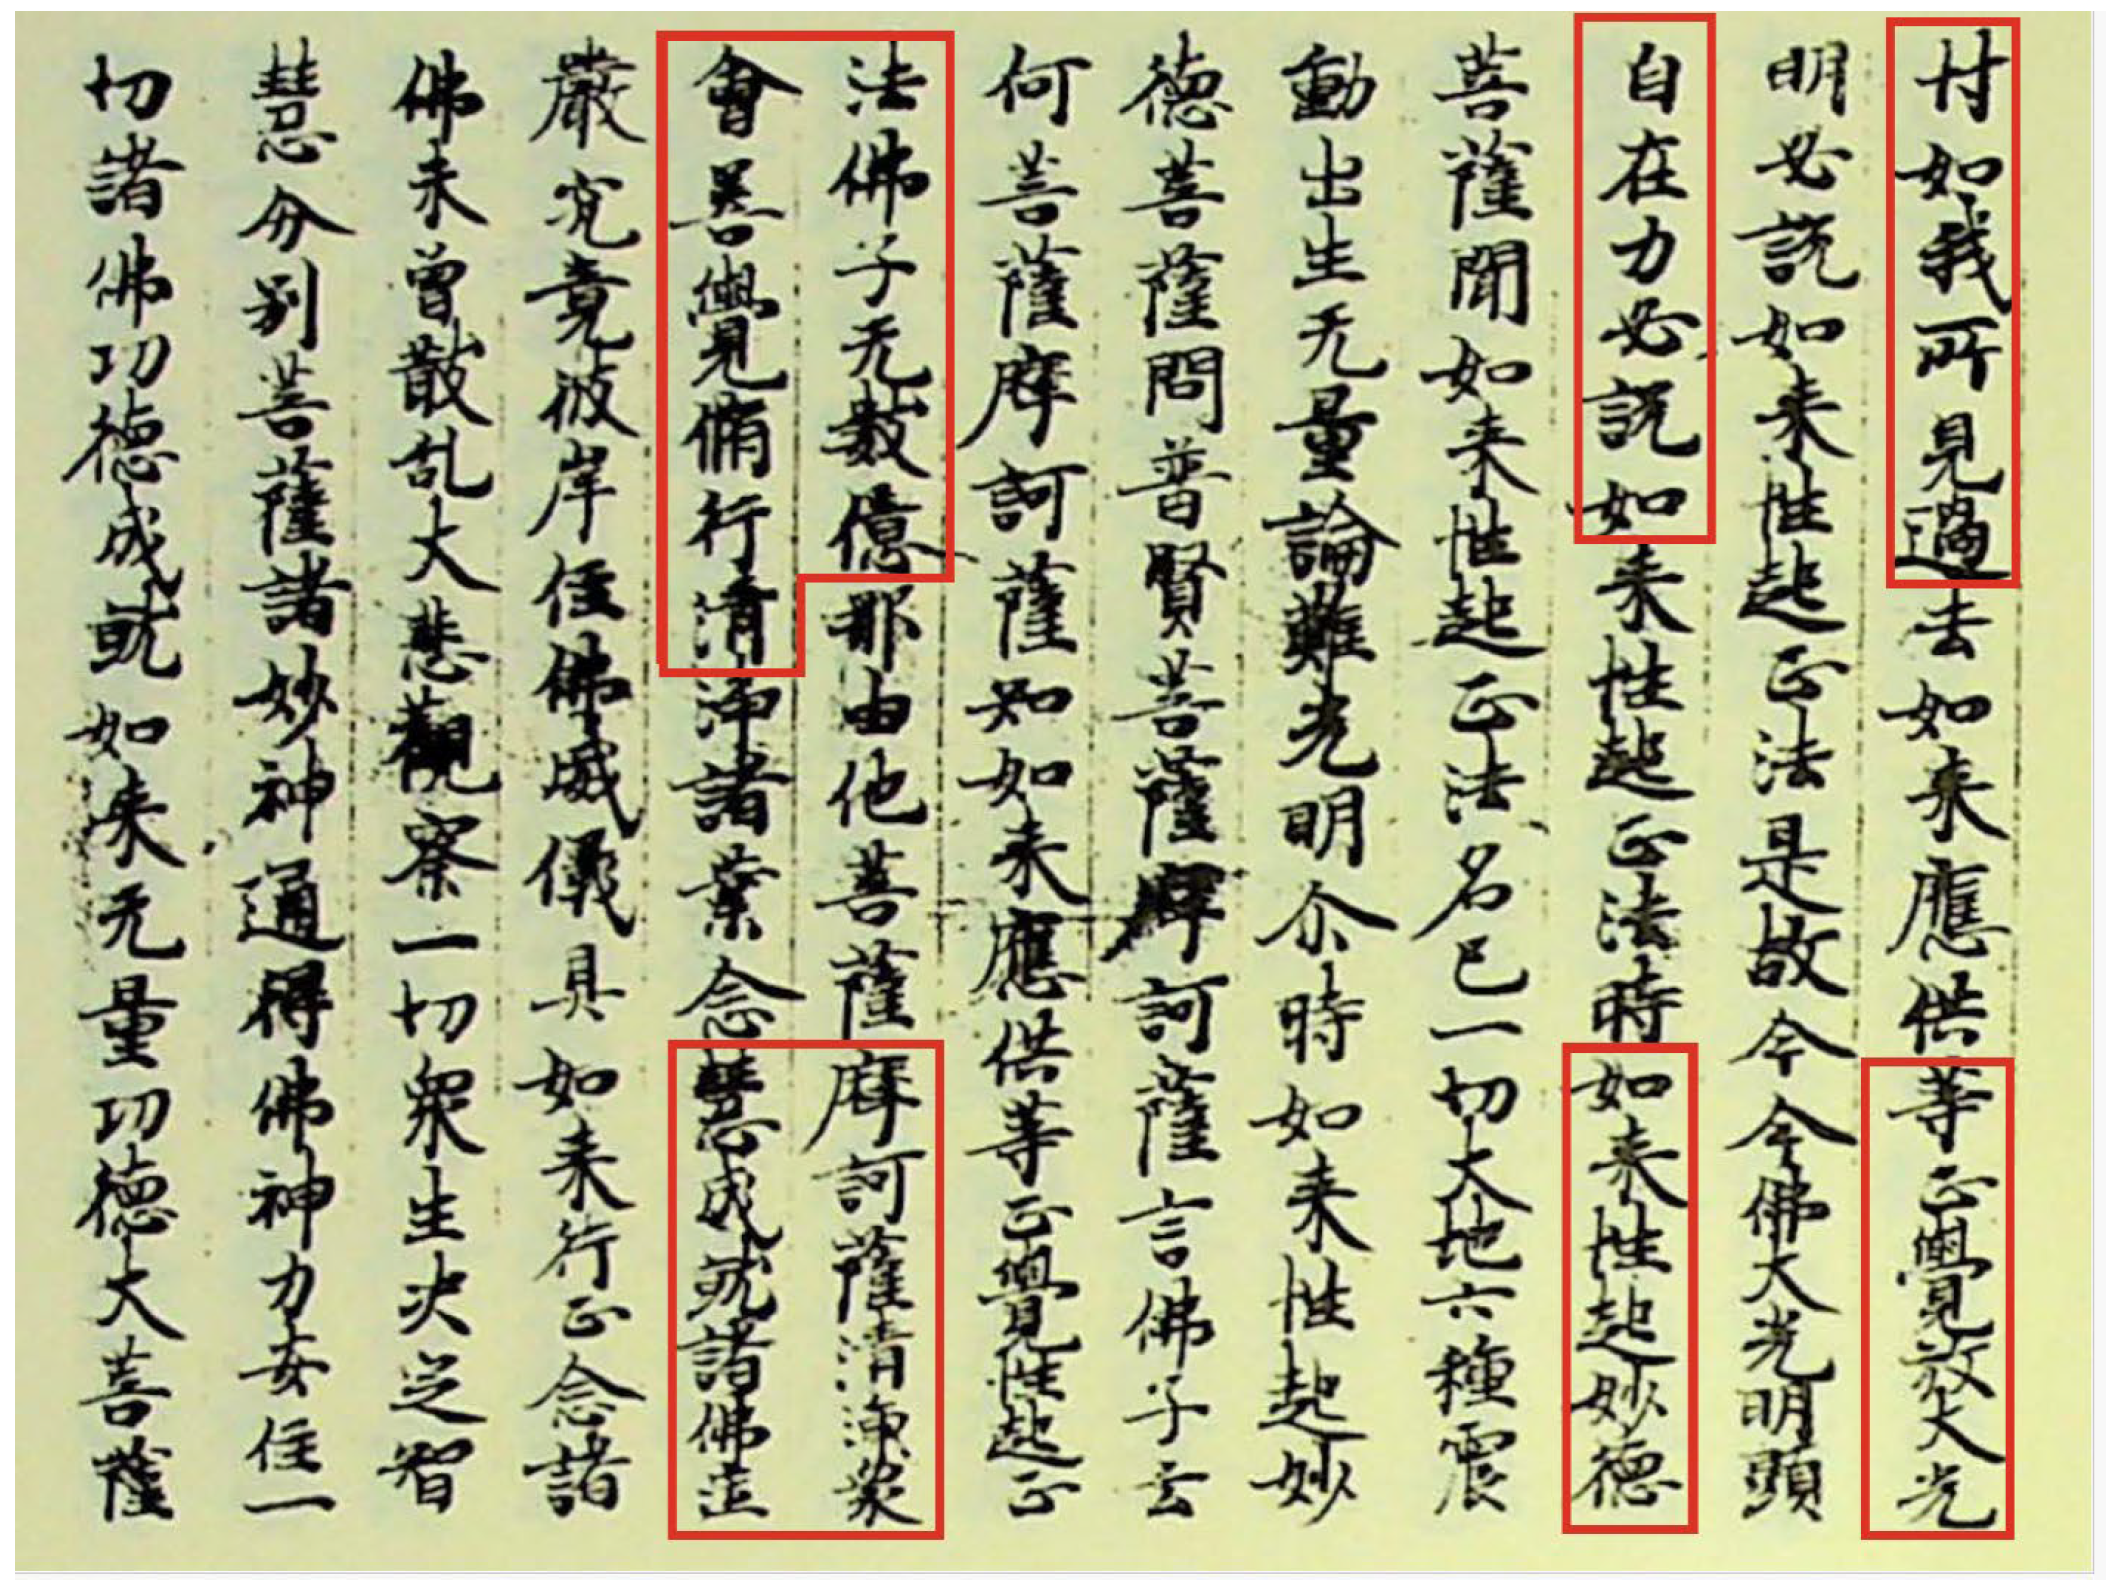 忖如我所見過去如来應供等正覺放大光
明必説如来性起正法是故今今佛大光明顕
自在力必説如来性起正法時如来性起妙徳
菩薩聞如来性起正法名已一切大地六種震
動出生无量論難光明尒時如来性起妙
徳菩薩問普賢菩薩摩訶薩言佛子云
何菩薩摩訶薩知如来應供等正覺性起正
法佛子无数億那由他菩薩摩訶薩清淨衆
會善覺脩行清淨諸業念慧成就諸佛莊
嚴究竟彼岸住佛威儀具如来行正念諸
佛未曾散乱大悲觀察一切衆生决定智
慧分别菩薩諸妙神通得佛神力安住一
切諸佛功徳成就如来无量功徳大菩薩